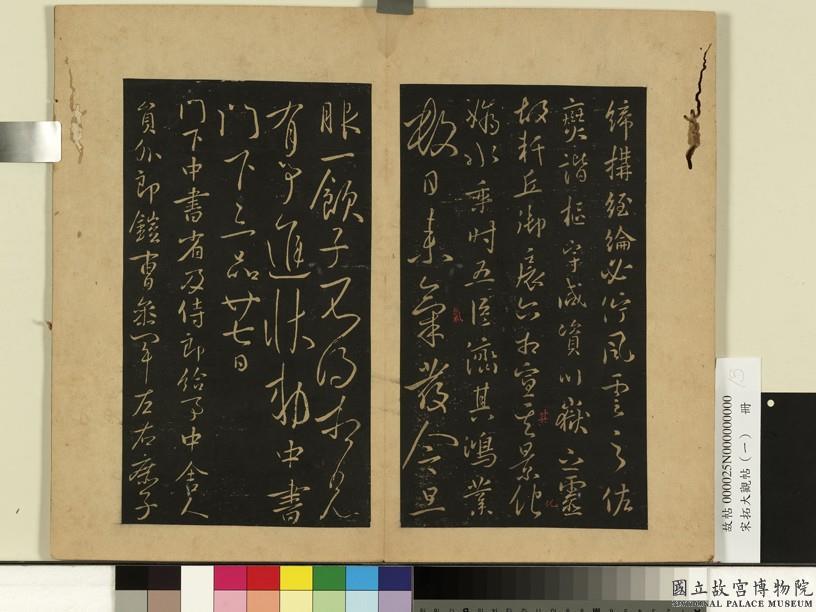 締構經綸必佇風雲之佐
爕諧樞宰咸資川嶽之靈
故軒丘御宸六相宣其景化
媯水乘時五臣濟其鴻業
數日來氣發今旦
眼一顧子不得相見
有事進狀勅中書
門下三品廿七日
門下中書省及侍郎給事中舍人
員外郎鎧曹叅軍左右庶子
氣
其
化
故帖000025N000000000
宋拓大觀帖（一） 冊
13
國立故宮博物院
NATIONAL PALACE MUSEUM